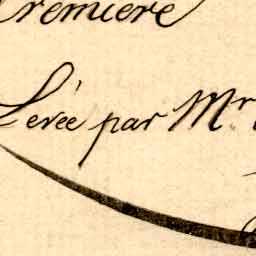 Premiere
Levée par Mr